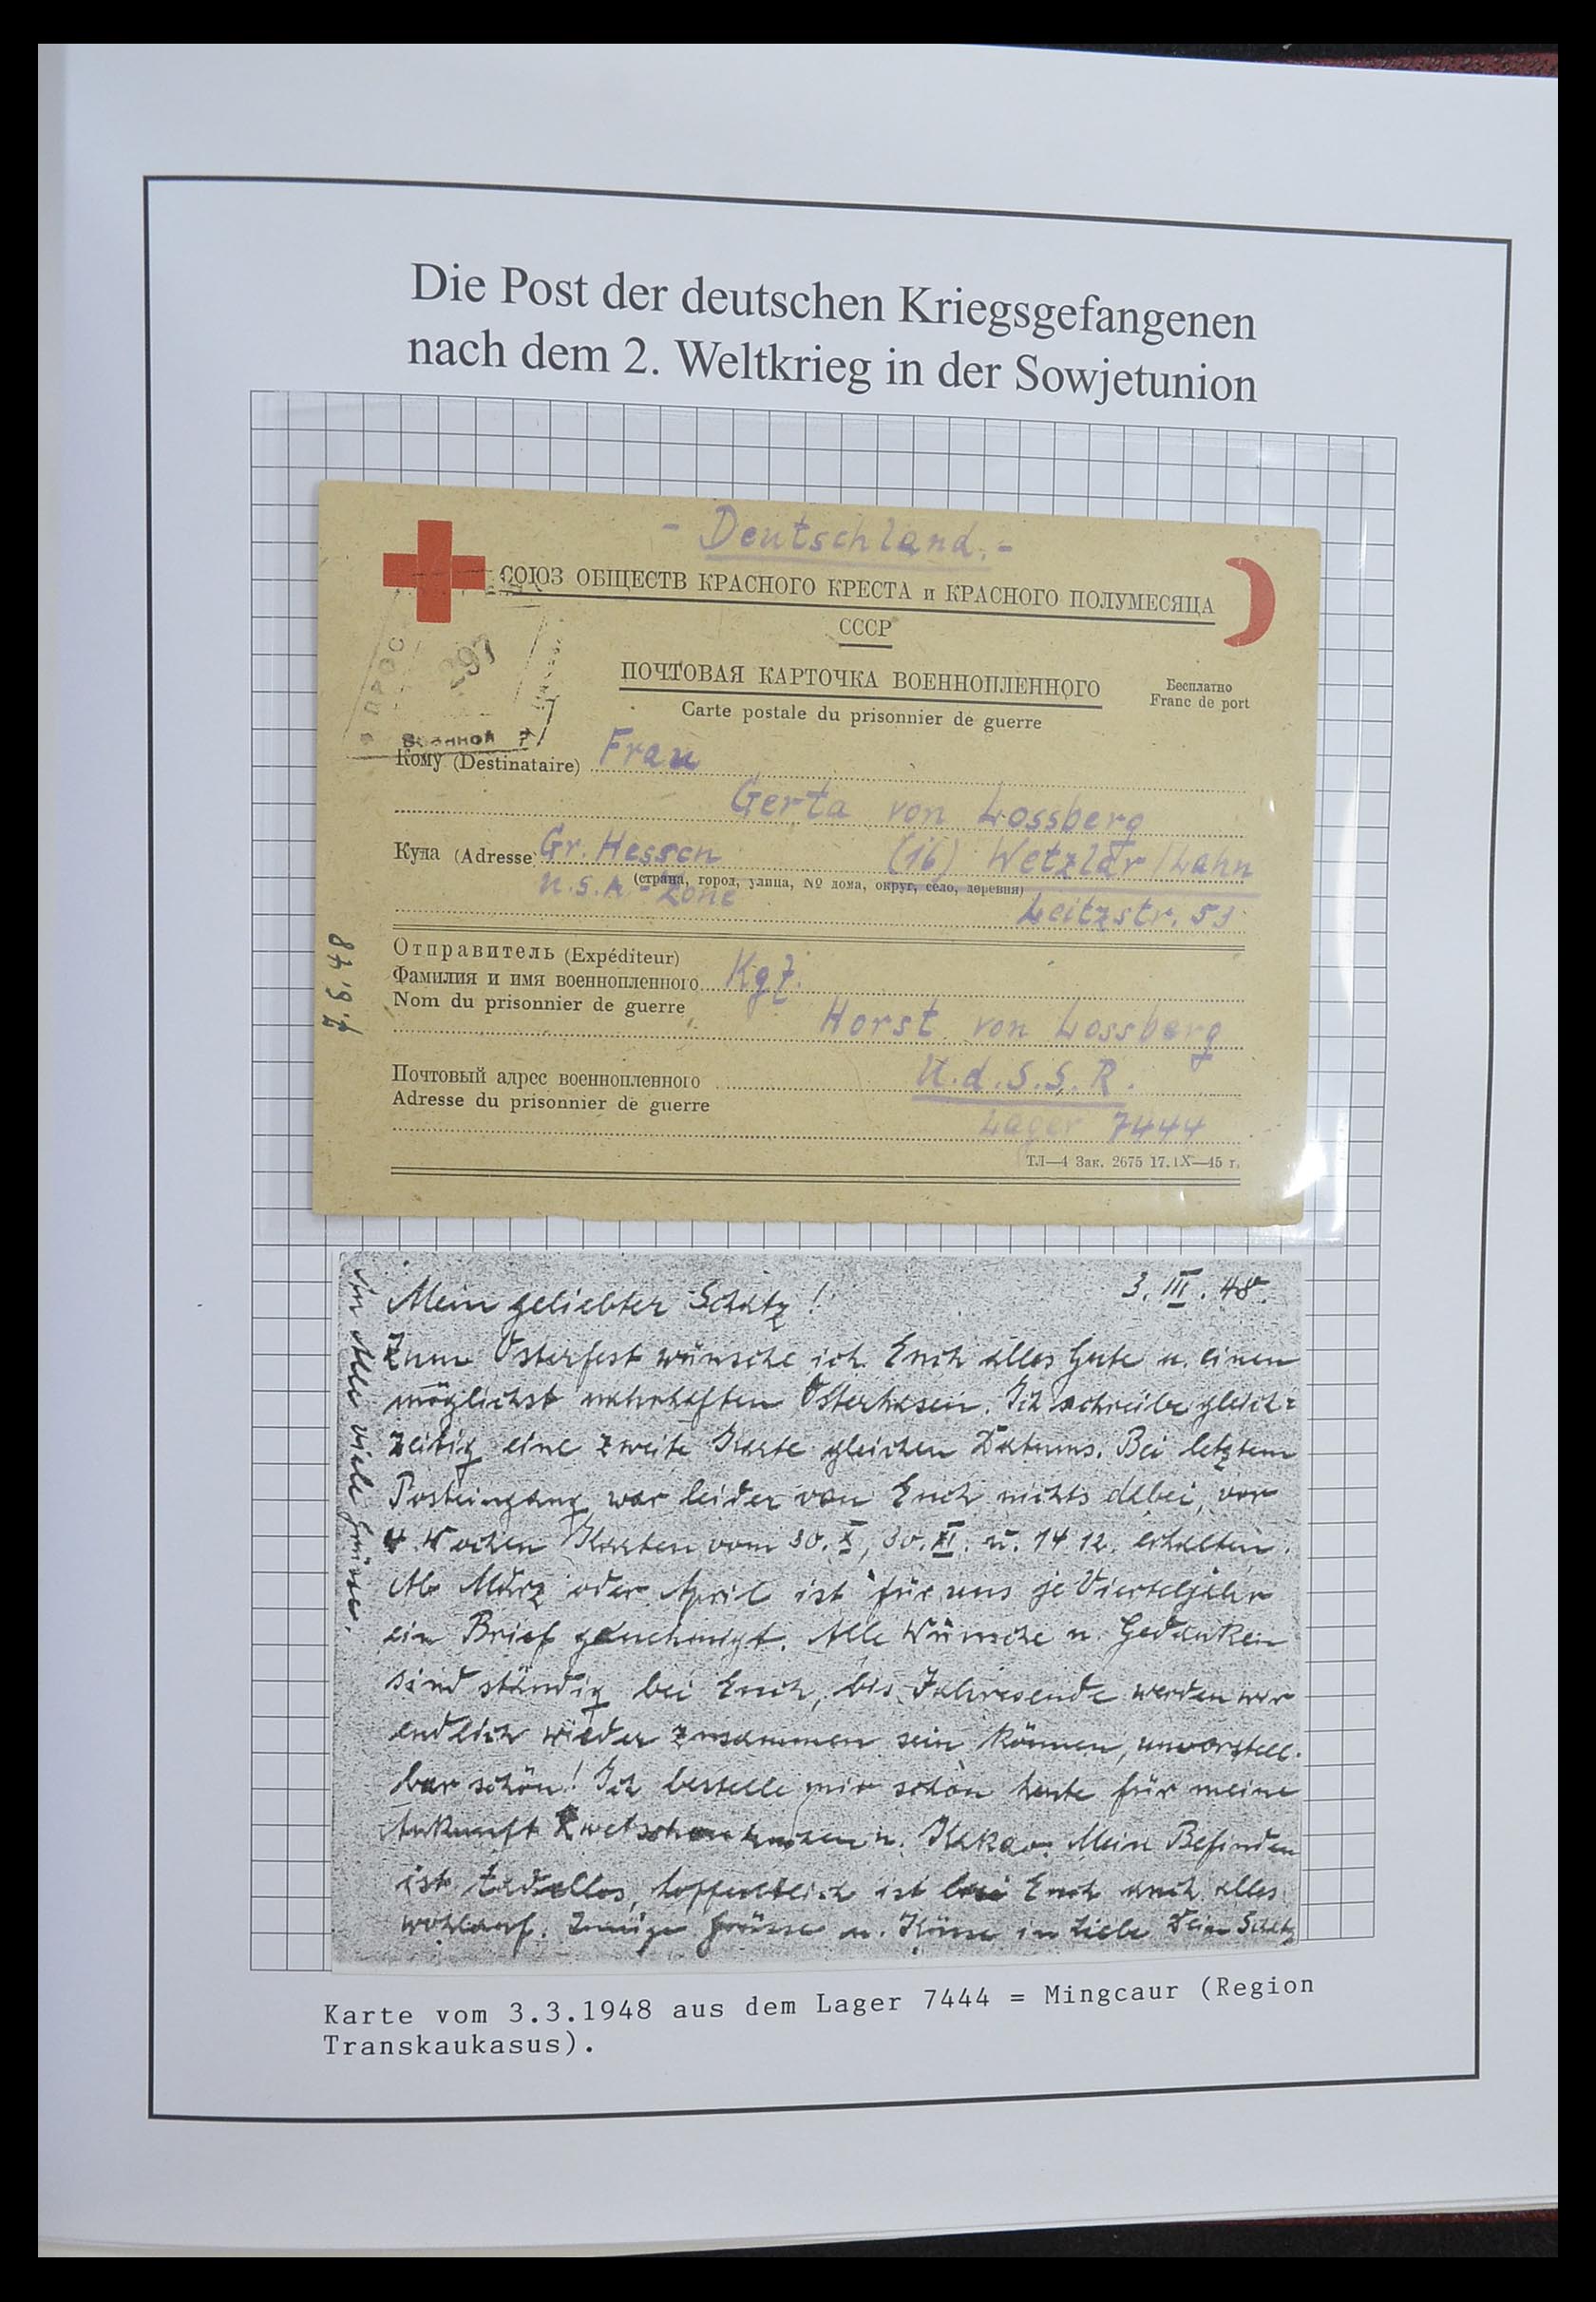 Die Post der deutschen Kriegsgefangenen
nach dem 2. Weltkrieg in der Sowjetunion
- Deutschland. -
СОЮЗ ОБЩЕСТВ КРАСНОГО КРЕСТА и КРАСНОГО ПОЛУМЕСЯЦА
СССР
ПОЧТОВАЯ КАРТОЧКА ВОЕННОПЛЕННОГО
Бесплатно
Franc de port
Carte postale du prisonnier de guerre
Кому (Destinataire) Frau
Gerta von Lossberg
Куда (Adresse) Gr. Hessen (16) Wetzlar/Lahn
(страна, город, улица, № дома, округ, село, деревня)
U.S.A-Zone
Leitzstr. 53
Отправитель (Expéditeur)
Фамилия и имя военнопленного Kgf.
Nom du prisonnier de guerre
Horst von Lossberg
Почтовый адрес военнопленного U.d.S.S.R.
Adresse du prisonnier de guerre
Lager 7444
ТЛ—4 Зак. 2675 17.IX—45 г.
3. III. 48.
Mein geliebter Schatz!
Zum Osterfest wünsche ich Euch alles Gute u. einen
möglichst nahrhaften Osterhasen. Ich schreibe gleich=
zeitig eine zweite Karte gleichen Datums. Bei letztem
Posteingang war leider von Euch nichts dabei, vor
4 Wochen Karten vom 30. X, 30. XI. u. 14.12. erhalten.
Ab März oder April ist für uns je Vierteljahr
ein Brief genehmigt. Alle Wünsche u. Gedanken
sind ständig bei Euch, bis Jahresende werden wir
endlich wieder zusammen sein können, unvorstell-
bar schön! Ich bestelle mir schon heute für meine
Ankunft Zwetschenkuchen u. Kakao. Mein Befinden
ist tadellos, hoffentlich ist bei Euch auch alles
wohlauf. Innige Grüsse u. Küsse in Liebe Dein Schatz
An Alle viele Grüsse.
Karte vom 3.3.1948 aus dem Lager 7444 = Mingcaur (Region
Transkaukasus).